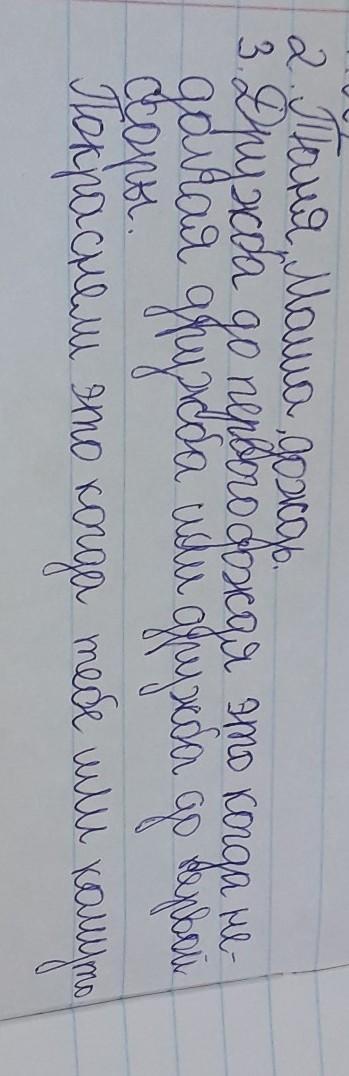 2. Таня, Маша, дождь.
3. Дружба до первого дождя это когда не-
долгая дружба или дружба до первой
ссоры.
Покраснели это когда тебе или комуто